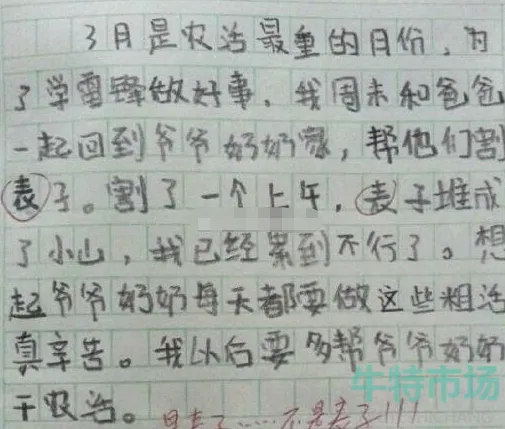 3月是农活最重的月份，为
了学雷锋做好事，我周末和爸爸
一起回到爷爷奶奶家，帮他们割
表子。割了一个上午，表子堆成
了小山，我已经累到不行了。想
起爷爷奶奶每天都要做这些粗活
真辛告。我以后要多帮爷爷奶奶
干农活。
是麦子……不是表子!!!
牛特市场